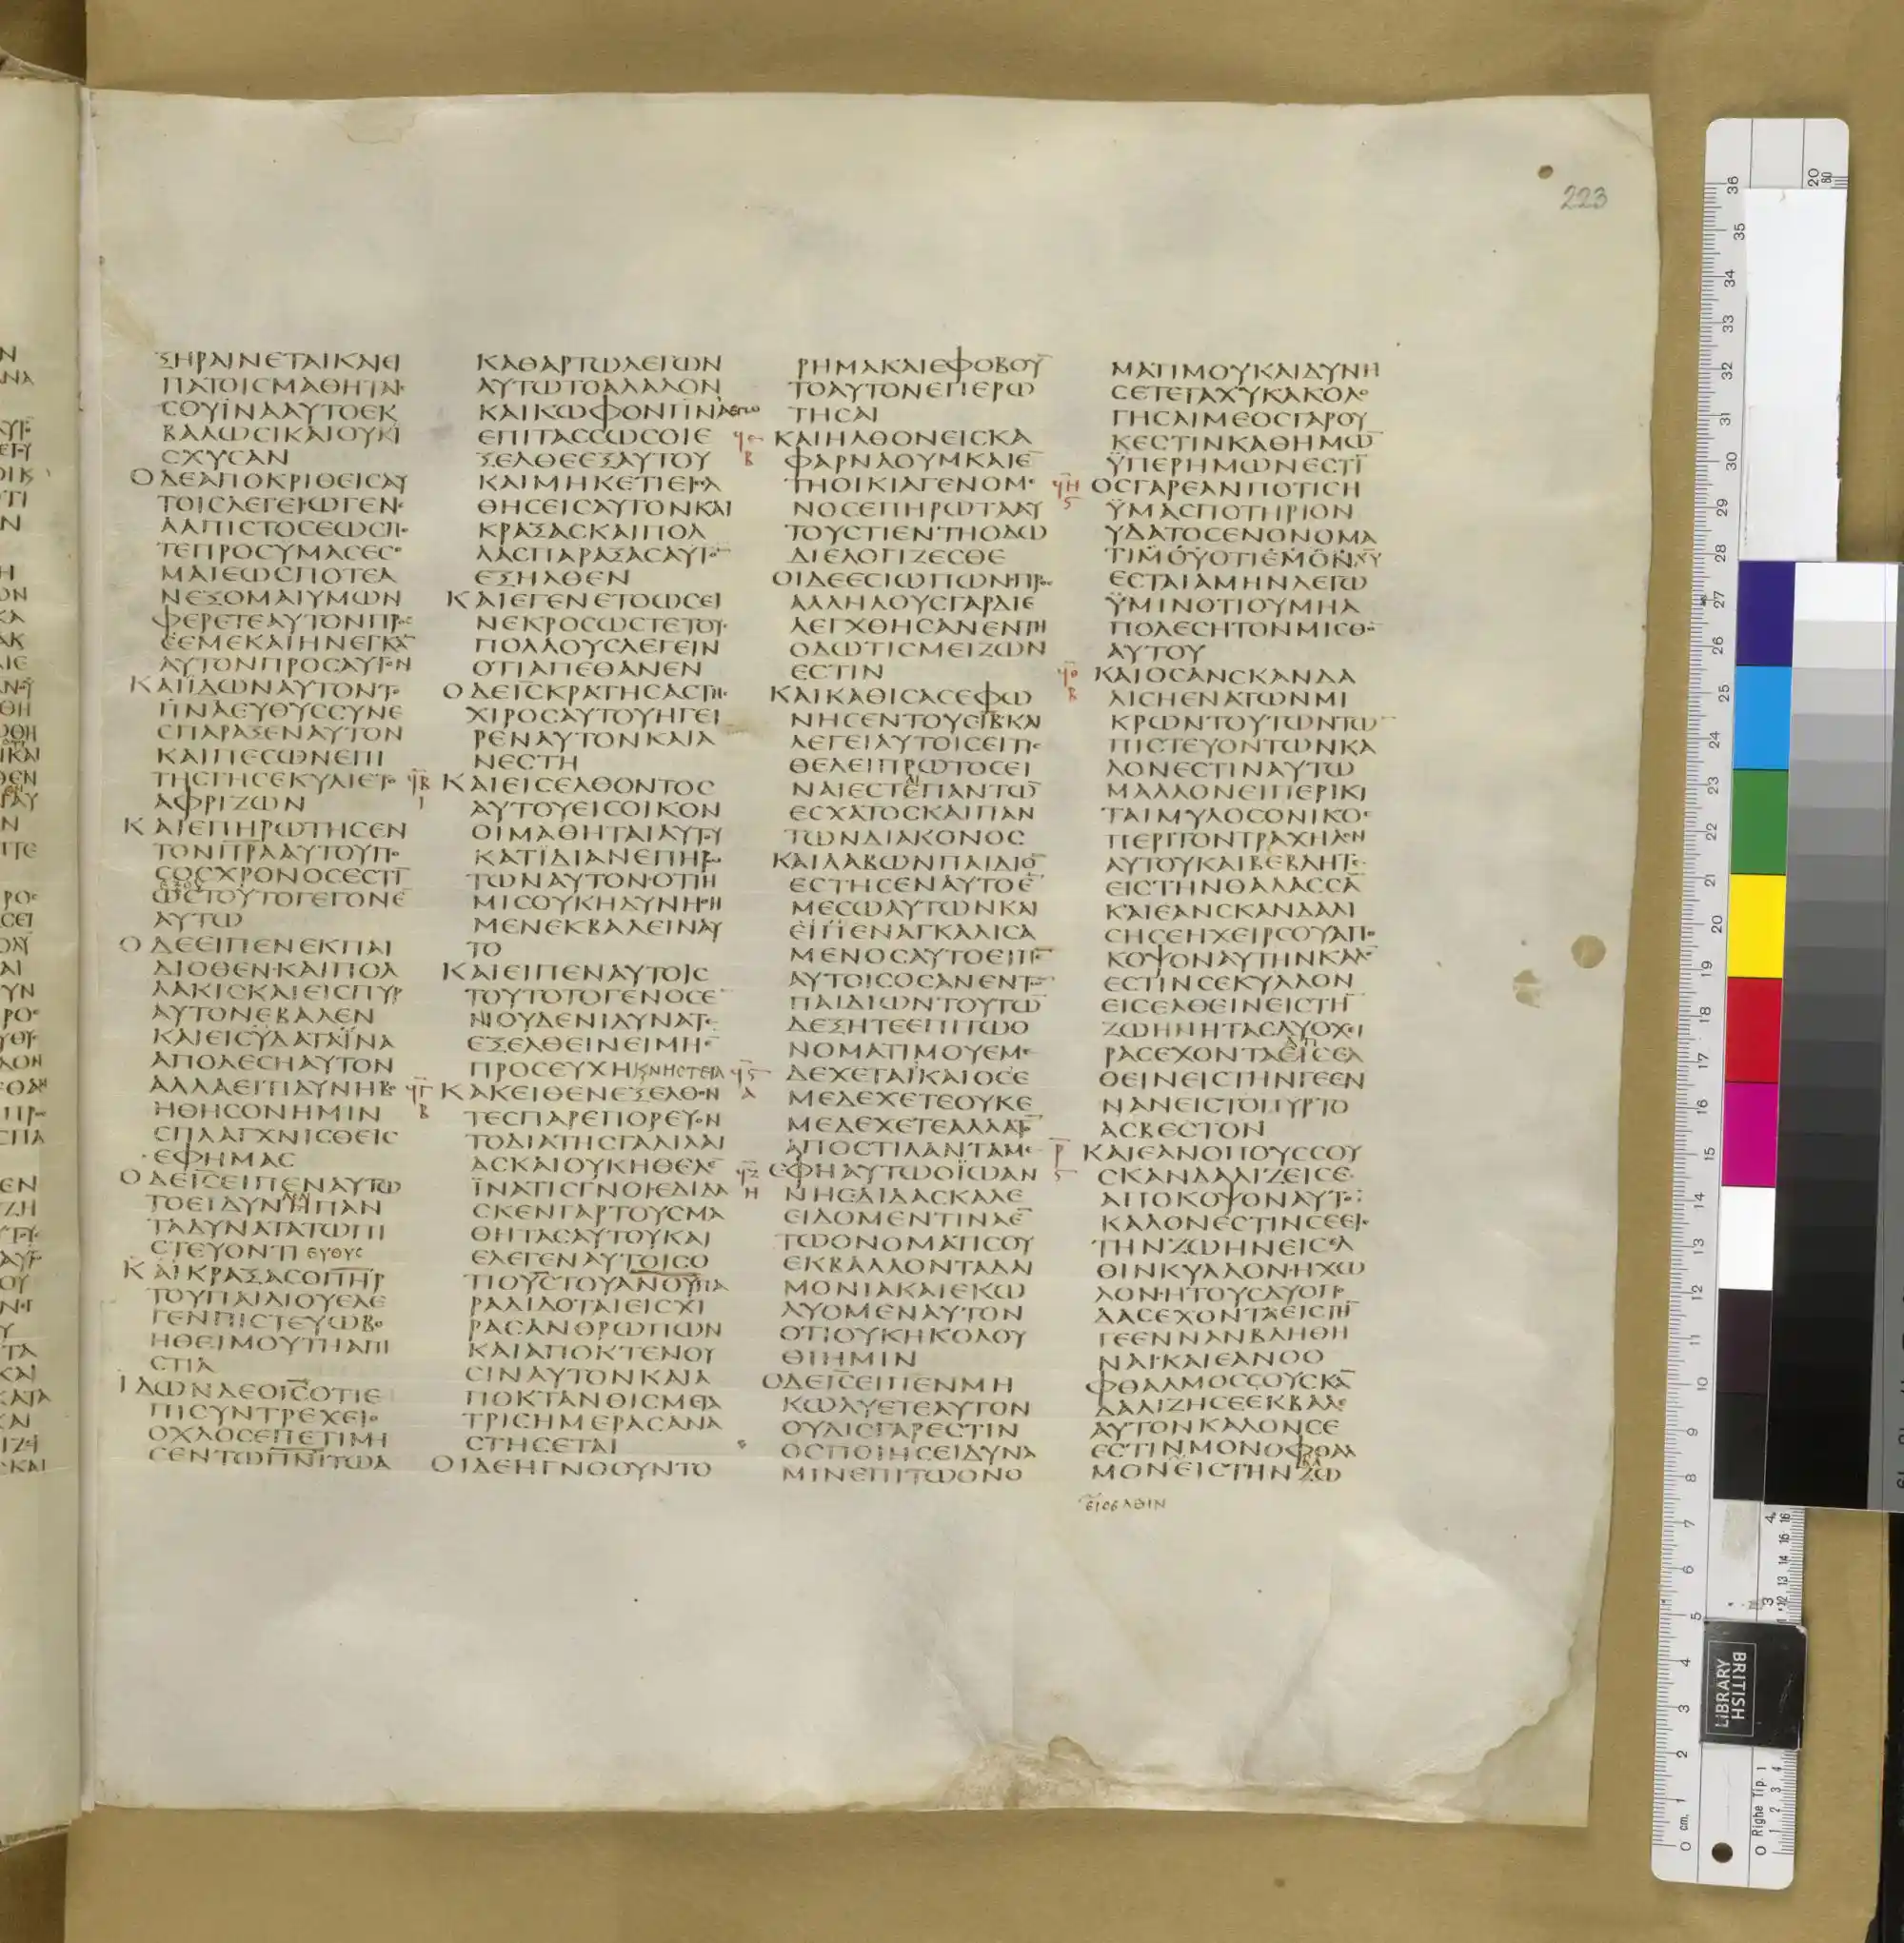 223
ΞΗΡΑΙΝΕΤΑΙΚΑΙΕΙ
ΠΑΤΟΙΣΜΑΘΗΤΑΙ
ΣΟΥΪΝΑΑΥΤΟΕΚ
ΒΑΛΩΣΙΚΑΙΟΥΚΙ
ΣΧΥΣΑΝ
ΟΔΕΑΠΟΚΡΙΘΕΙΣΑΥ
ΤΟΙΣΛΕΓΕΙΩΓΕΝΕ
ΑΑΠΙΣΤΟΣΕΩΣΠΟ
ΤΕΠΡΟΣΥΜΑΣΕΣΟ
ΜΑΙΕΩΣΠΟΤΕΑ
ΝΕΞΟΜΑΙΥΜΩΝ
ΦΕΡΕΤΕΑΥΤΟΝΠΡΟΣ
ΕΜΕΚΑΙΗΝΕΓΚΑ̅
ΑΥΤΟΝΠΡΟΣΑΥΤΟΝ
ΚΑΙΪΔΩΝΑΥΤΟΝΤΟ
Π̅Ν̅ΑΕΥΘΥΣΣΥΝΕ
ΣΠΑΡΑΞΕΝΑΥΤΟΝ
ΚΑΙΠΕΣΩΝΕΠΙ
ΤΗΣΓΗΣΕΚΥΛΙΕΤΟ
ΑΦΡΙΖΩΝ
ΚΑΙΕΠΗΡΩΤΗΣΕΝ
ΤΟΝΠ̅Ρ̅Α̅ΑΥΤΟΥΠΟ
ΣΟΣΧΡΟΝΟΣΕΣΤΙ̅
ΩΣΤΟΥΤΟΓΕΓΟΝΕ
ΑΥΤΩ
ΟΔΕΕΙΠΕΝΕΚΠΑΙ
ΔΙΟΘΕΝΚΑΙΠΟΛ
ΛΑΚΙΣΚΑΙΕΙΣΠΥΡ
ΑΥΤΟΝΕΒΑΛΕΝ
ΚΑΙΕΙΣΫΔΑΤΑΪΝΑ
ΑΠΟΛΕΣΗΑΥΤΟΝ
ΑΛΛΑΕΙΤΙΔΥΝΗΒΟ
ΗΘΗΣΟΝΗΜΙΝ
ΣΠΛΑΓΧΝΙΣΘΕΙΣ
ΕΦΗΜΑΣ
ΟΔΕΙ̅Σ̅ΕΙΠΕΝΑΥΤΩ
ΤΟΕΙΔΥΝΗΠΑΝ
ΤΑΔΥΝΑΤΑΤΩΠΙ
ΣΤΕΥΟΝΤΙ ΕΥΘΥΣ
ΚΑΙΚΡΑΞΑΣΟΠ̅Η̅Ρ̅
ΤΟΥΠΑΙΔΙΟΥΕΛΕ
ΓΕΝΠΙΣΤΕΥΩΒΟ
ΗΘΕΙΜΟΥΤΗΑΠΙ
ΣΤΙΑ
ΙΔΩΝΔΕΟΙ̅Σ̅ΟΤΙΕ
ΠΙΣΥΝΤΡΕΧΕΙΟ
ΟΧΛΟΣΕΠΕΤΙΜΗ
ΣΕΝΤΩΠ̅Ν̅Ι̅ΤΩΑ
ΚΑΘΑΡΤΩΛΕΓΩΝ
ΑΥΤΩΤΟΑΛΑΛΟΝ
ΚΑΙΚΩΦΟΝΠ̅Ν̅ΑΕΓΩ
ΕΠΙΤΑΣΣΩΣΟΙΕ
ΞΕΛΘΕΕΞΑΥΤΟΥ
ΚΑΙΜΗΚΕΤΙΕΙΣΕΛ
ΘΗΣΕΙΣΑΥΤΟΝΚΑΙ
ΚΡΑΞΑΣΚΑΙΠΟΛ
ΛΑΣΠΑΡΑΞΑΣΑΥΤΟ̅
ΕΞΗΛΘΕΝ
ΚΑΙΕΓΕΝΕΤΟΩΣΕΙ
ΝΕΚΡΟΣΩΣΤΕΤΟΥΣ
ΠΟΛΛΟΥΣΛΕΓΕΙΝ
ΟΤΙΑΠΕΘΑΝΕΝ
ΟΔΕΙ̅Σ̅ΚΡΑΤΗΣΑΣΤΗΣ
ΧΙΡΟΣΑΥΤΟΥΗΓΕΙ
ΡΕΝΑΥΤΟΝΚΑΙΑ
ΝΕΣΤΗ
ΚΑΙΕΙΣΕΛΘΟΝΤΟΣ
ΑΥΤΟΥΕΙΣΟΙΚΟΝ
ΟΙΜΑΘΗΤΑΙΑΥΤΟΥ
ΚΑΤΪΔΙΑΝΕΠΗΡΩ
ΤΩΝΑΥΤΟΝΟΤΙΗ
ΜΙΣΟΥΚΗΔΥΝΗΘΗ
ΜΕΝΕΚΒΑΛΕΙΝΑΥ
ΤΟ
ΚΑΙΕΙΠΕΝΑΥΤΟΙΣ
ΤΟΥΤΟΤΟΓΕΝΟΣΕ̅
ΝΙΟΥΔΕΝΙΔΥΝΑΤΑΙ
ΕΞΕΛΘΕΙΝΕΙΜΗΕ̅
ΠΡΟΣΕΥΧΗΚΝΗΣΤΕΙΑ
ΚΑΚΕΙΘΕΝΕΞΕΛΘΟΝ
ΤΕΣΠΑΡΕΠΟΡΕΥΟΝ
ΤΟΔΙΑΤΗΣΓΑΛΙΛΑΙ
ΑΣΚΑΙΟΥΚΗΘΕΛΕ̅
ΪΝΑΤΙΣΓΝΟΙΕΔΙΔΑ
ΣΚΕΝΓΑΡΤΟΥΣΜΑ
ΘΗΤΑΣΑΥΤΟΥΚΑΙ
ΕΛΕΓΕΝΑΥΤΟΙΣΟ
ΤΙΟΥ̅Σ̅ΤΟΥΑ̅Ν̅Ο̅Υ̅ΠΑ
ΡΑΔΙΔΟΤΑΙΕΙΣΧΙ
ΡΑΣΑΝΘΡΩΠΩΝ
ΚΑΙΑΠΟΚΤΕΝΟΥ
ΣΙΝΑΥΤΟΝΚΑΙΑ
ΠΟΚΤΑΝΘΙΣΜΕΤΑ
ΤΡΙΣΗΜΕΡΑΣΑΝΑ
ΣΤΗΣΕΤΑΙ
ΟΙΔΕΗΓΝΟΟΥΝΤΟ
ΡΗΜΑΚΑΙΕΦΟΒΟΥ̅
ΤΟΑΥΤΟΝΕΠΕΡΩ
ΤΗΣΑΙ
ΚΑΙΗΛΘΟΝΕΙΣΚΑ
ΦΑΡΝΑΟΥΜΚΑΙΕ̅
ΤΗΟΙΚΙΑΓΕΝΟΜΕ
ΝΟΣΕΠΗΡΩΤΑΑΥ
ΤΟΥΣΤΙΕΝΤΗΟΔΩ
ΔΙΕΛΟΓΙΖΕΣΘΕ
ΟΙΔΕΕΣΙΩΠΩΝΠΡΟΣ
ΑΛΛΗΛΟΥΣΓΑΡΔΙΕ
ΛΕΓΧΘΗΣΑΝΕΝΤΗ
ΟΔΩΤΙΣΜΕΙΖΩΝ
ΕΣΤΙΝ
ΚΑΙΚΑΘΙΣΑΣΕΦΩ
ΝΗΣΕΝΤΟΥΣΙ̅Β̅ΚΑΙ
ΛΕΓΕΙΑΥΤΟΙΣΕΙΤΙΣ
ΘΕΛΕΙΠΡΩΤΟΣΕΙ
ΝΑΙΕΣΤΕΠΑΝΤΩ̅
ΕΣΧΑΤΟΣΚΑΙΠΑΝ
ΤΩΝΔΙΑΚΟΝΟΣ
ΚΑΙΛΑΒΩΝΠΑΙΔΙΟ̅
ΕΣΤΗΣΕΝΑΥΤΟΕ̅
ΜΕΣΩΑΥΤΩΝΚΑΙ
ΕΝΑΓΚΑΛΙΣΑ
ΜΕΝΟΣΑΥΤΟΕΙΠΕ̅
ΑΥΤΟΙΣΟΣΑΝΕΝΤΩ̅
ΠΑΙΔΙΩΝΤΟΥΤΩ̅
ΔΕΞΗΤΕΕΠΙΤΩΟ
ΝΟΜΑΤΙΜΟΥΕΜΕ
ΔΕΧΕΤΑΙΚΑΙΟΣΕ
ΜΕΔΕΧΕΤΕΟΥΚΕ
ΜΕΔΕΧΕΤΕΑΛΛΑΤΟ̅
ΑΠΟΣΤΙΛΑΝΤΑΜΕ
ΕΦΗΑΥΤΩΟΪΩΑΝ
ΝΗΣΔΙΔΑΣΚΑΛΕ
ΕΙΔΟΜΕΝΤΙΝΑΕ̅
ΤΩΟΝΟΜΑΤΙΣΟΥ
ΕΚΒΑΛΛΟΝΤΑΔΑΙ
ΜΟΝΙΑΚΑΙΕΚΩ
ΛΥΟΜΕΝΑΥΤΟΝ
ΟΤΙΟΥΚΗΚΟΛΟΥ
ΘΙΗΜΙΝ
ΟΔΕΙ̅Σ̅ΕΙΠΕΝΜΗ
ΚΩΛΥΕΤΕΑΥΤΟΝ
ΟΥΔΙΣΓΑΡΕΣΤΙΝ
ΟΣΠΟΙΗΣΕΙΔΥΝΑ
ΜΙΝΕΠΙΤΩΟΝΟ
ΜΑΤΙΜΟΥΚΑΙΔΥΝΗ
ΣΕΤΕΤΑΧΥΚΑΚΟΛΟ
ΓΗΣΑΙΜΕΟΣΓΑΡΟΥ
ΚΕΣΤΙΝΚΑΘΗΜΩ̅
ΫΠΕΡΗΜΩΝΕΣΤΙ̅
ΟΣΓΑΡΕΑΝΠΟΤΙΣΗ
ΫΜΑΣΠΟΤΗΡΙΟΝ
ΥΔΑΤΟΣΕΝΟΝΟΜΑ
ΤΙΜΟΥΟΤΙΕΜΟΝΧ̅Υ̅
ΕΣΤΑΙΑΜΗΝΛΕΓΩ
ΫΜΙΝΟΤΙΟΥΜΗΑ
ΠΟΛΕΣΗΤΟΝΜΙΣΘΟ̅
ΑΥΤΟΥ
ΚΑΙΟΣΑΝΣΚΑΝΔΑ
ΛΙΣΗΕΝΑΤΩΝΜΙ
ΚΡΩΝΤΟΥΤΩΝΤΩ̅
ΠΙΣΤΕΥΟΝΤΩΝΚΑ
ΛΟΝΕΣΤΙΝΑΥΤΩ
ΜΑΛΛΟΝΕΙΠΕΡΙΚΙ
ΤΑΙΜΥΛΟΣΟΝΙΚΟΣ
ΠΕΡΙΤΟΝΤΡΑΧΗΛΟΝ
ΑΥΤΟΥΚΑΙΒΕΒΛΗΤΑΙ
ΕΙΣΤΗΝΘΑΛΑΣΣΑ̅
ΚΑΙΕΑΝΣΚΑΝΔΑΛΙ
ΣΗΣΕΗΧΕΙΡΣΟΥΑΠΟ
ΚΟΨΟΝΑΥΤΗΝΚΑΛΟ̅
ΕΣΤΙΝΣΕΚΥΛΛΟΝ
ΕΙΣΕΛΘΕΙΝΕΙΣΤΗ̅
ΖΩΗΝΗΤΑΣΔΥΟΧΙ
ΡΑΣΕΧΟΝΤΑΕΙΣΕΛ
ΘΕΙΝΕΙΣΤΗΝΓΕΕΝ
ΝΑΝΕΙΣΤΟΠΥΡΤΟ
ΑΣΒΕΣΤΟΝ
ΚΑΙΕΑΝΟΠΟΥΣΣΟΥ
ΣΚΑΝΔΑΛΙΖΕΙΣΕ
ΑΠΟΚΟΨΟΝΑΥΤΟ̅
ΚΑΛΟΝΕΣΤΙΝΣΕΕΙΣ
ΤΗΝΖΩΗΝΕΙΣΕΛ
ΘΙΝΚΥΛΛΟΝΗΧΩ
ΛΟΝΗΤΟΥΣΔΥΟΠΟ
ΔΑΣΕΧΟΝΤΑΕΙΣΤΗ̅
ΓΕΕΝΝΑΝΒΛΗΘΗ
ΝΑΙΚΑΙΕΑΝΟΟ
ΦΘΑΛΜΟΣΣΟΥΣΚΑ̅
ΔΑΛΙΖΗΣΕΕΚΒΑΛΕ
ΑΥΤΟΝΚΑΛΟΝΣΕ
ΕΣΤΙΝΜΟΝΟΦΘΑΛ
ΜΟΝΕΙΣΤΗΝΖΩ
ΕΙΣΕΛΘΙΝ
BRITISH
LIBRARY